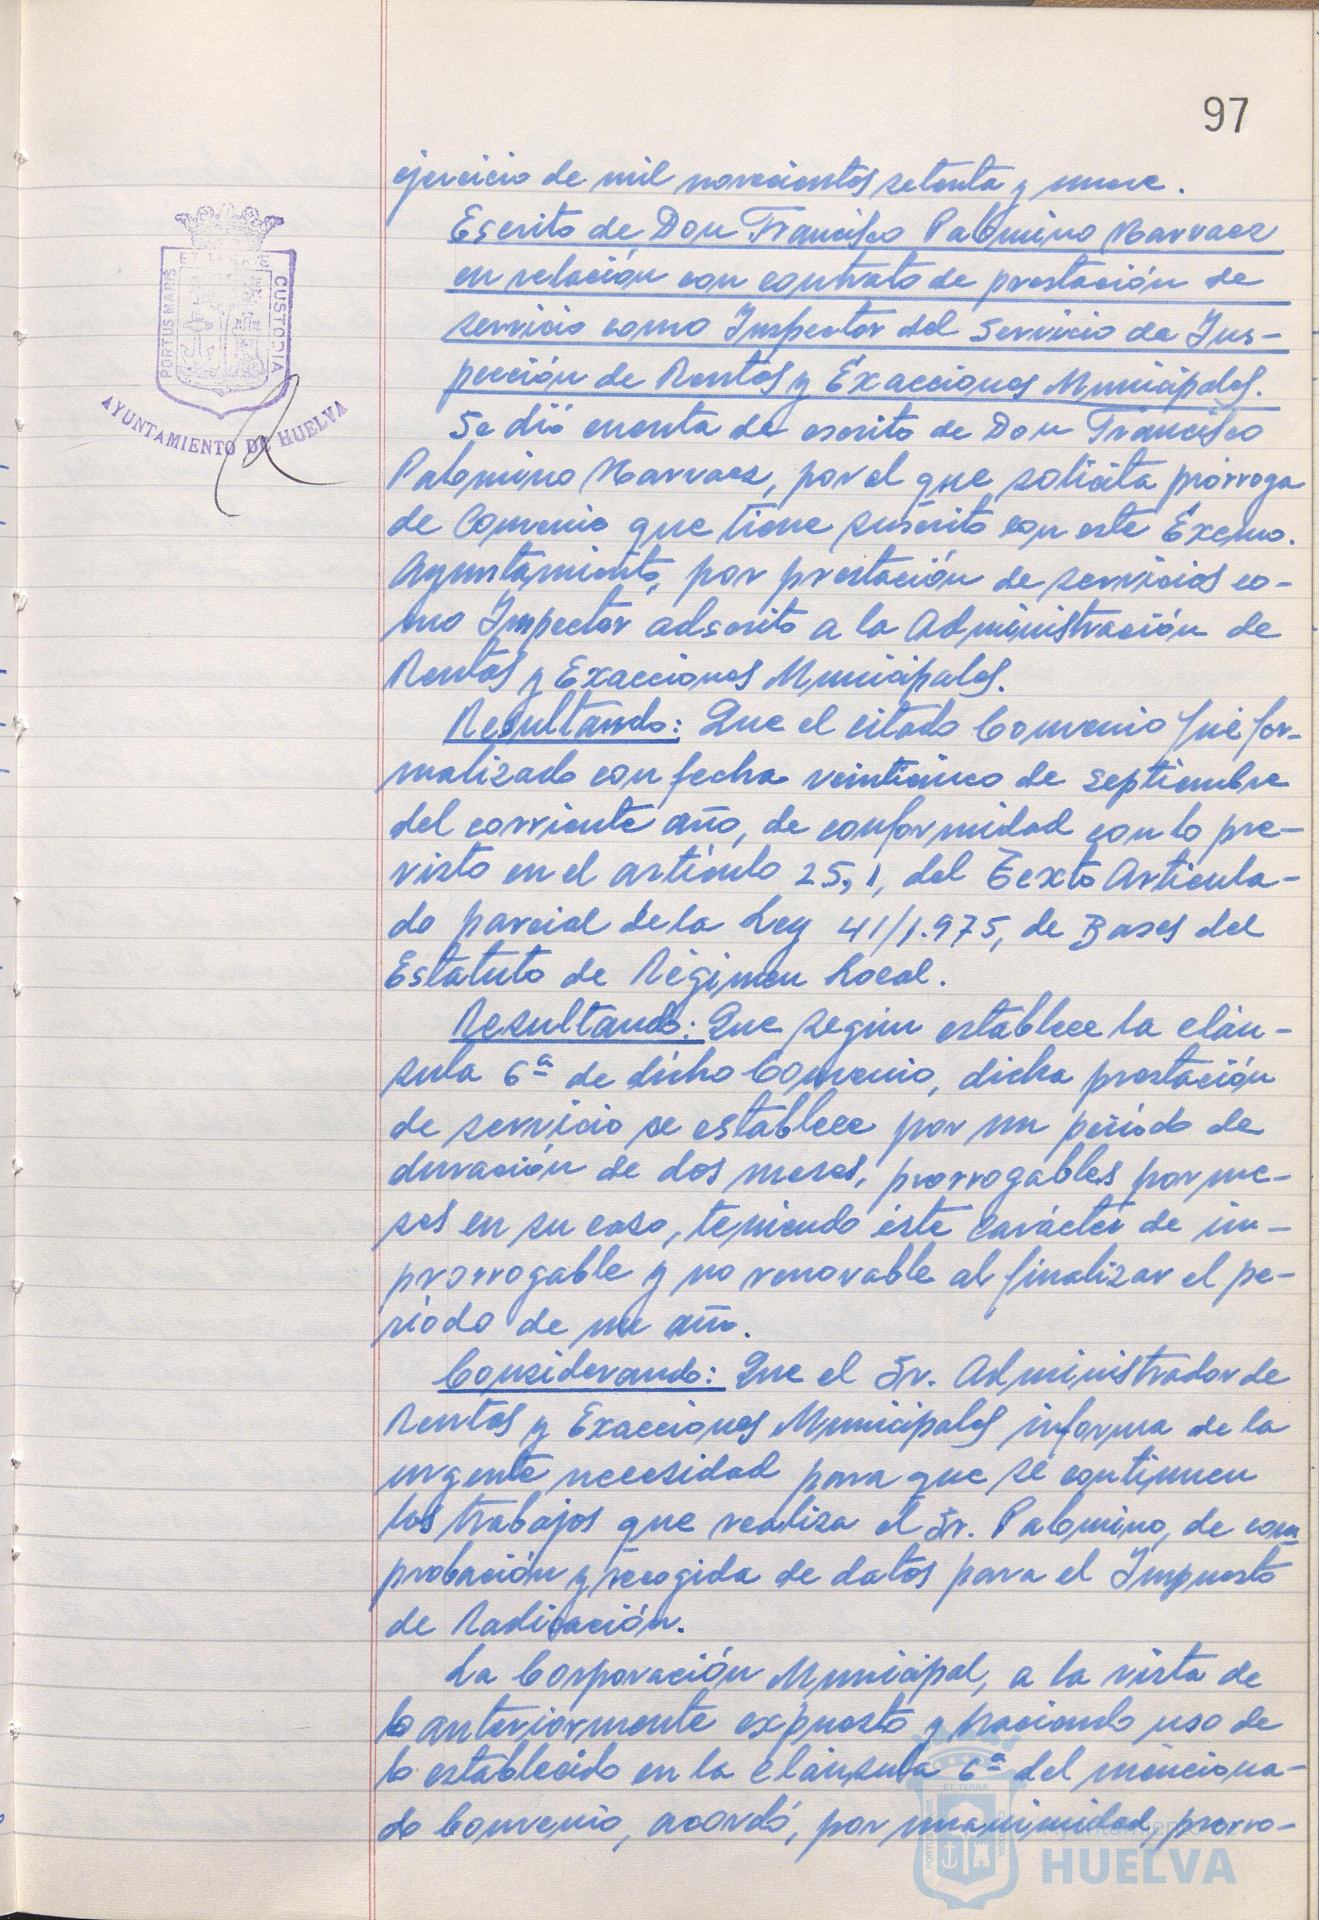 97
ejercicio de mil novecientos setenta y nueve.
Escrito de Don Francisco Palomino Narvaez
en relación con contrato de prestación de
servicio como Inspector del Servicio de Ins-
pección de Rentas y Exacciones Municipales.
Se dió cuenta de escrito de Don Francisco
Palomino Narvaez, por el que solicita prórroga
de Convenio que tiene suscrito con este Excmo.
Ayuntamiento, por prestación de servicios co-
mo Inspector adscrito a la Administración de
Rentas y Exacciones Municipales.
Resultando: Que el citado Convenio fué for-
malizado con fecha veinticinco de septiembre
del corriente año, de conformidad con lo pre-
visto en el artículo 25,1, del Texto Articula-
do parcial de la Ley 41/1.975, de Bases del
Estatuto de Régimen Local.
Resultando: Que según establece la cláu-
sula 6ª de dicho Convenio, dicha prestación
de servicio se establece por un período de
duración de dos meses, prorrogables por me-
ses en su caso, teniendo éste carácter de im-
prorrogable y no renovable al finalizar el pe-
ríodo de un año.
Considerando: Que el Sr. Administrador de
Rentas y Exacciones Municipales informa de la
urgente necesidad para que se continuen
los trabajos que realiza el Sr. Palomino, de com
probación y recogida de datos para el Impuesto
de Radicación.
La Corporación Municipal, a la vista de
lo anteriormente expuesto y haciendo uso de
lo establecido en la cláusula 6ª del menciona-
do Convenio, acordó, por unanimidad, prorro-
PORTUS MARIS ET TERRÆ CUSTODIA
AYUNTAMIENTO DE HUELVA
PORTUS MARIS ET TERRÆ CUSTODIA
Ayuntamiento
HUELVA